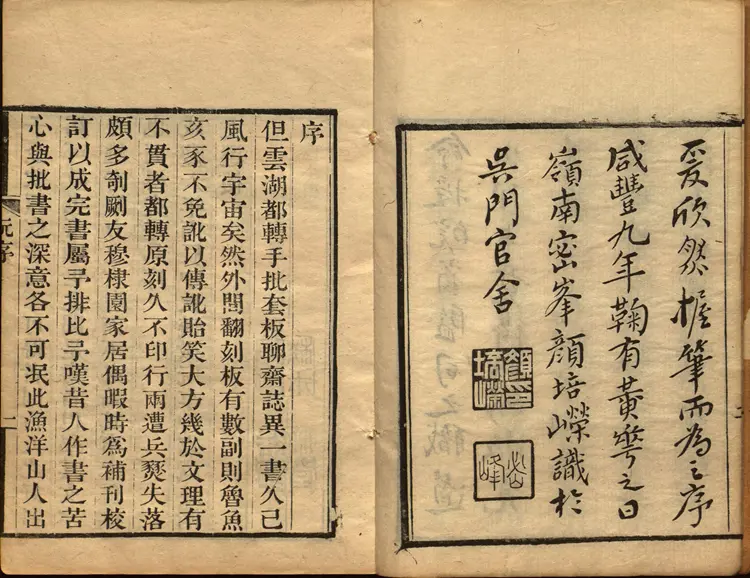 爰欣然握筆而為之序
咸豐九年鞠有黃華之日
嶺南密峯顏培嶸識於
吳門官舍
顏印培嶸
密峰
序
但雲湖都轉手批套板聊齋誌異一書久已
風行宇宙矣然外間翻刻板有數副則魯魚
亥豕不免訛以傳訛貽笑大方幾於文理有
不貫者都轉原刻久不印行兩遭兵燹失落
頗多剞劂友穆棣園家居偶暇時為補刊校
訂以成完書屬予排比予嘆昔人作書之苦
心與批書之深意各不可泯此漁洋山人出
阮序